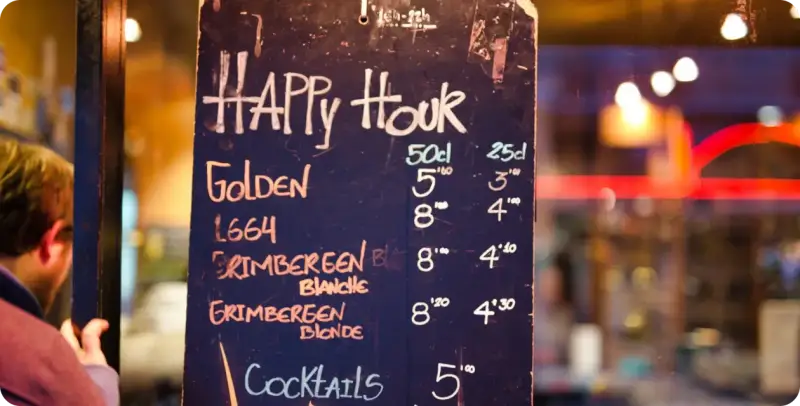 16h-22h
HAPPY HOUR
50cl 25cl
GOLDEN 5'00 3'00
1664 8'00 4'00
GRIMBERGEN 8'00 4'10
BLANCHE
GRIMBERGEN 8'20 4'30
BLONDE
COCKTAILS 5'00